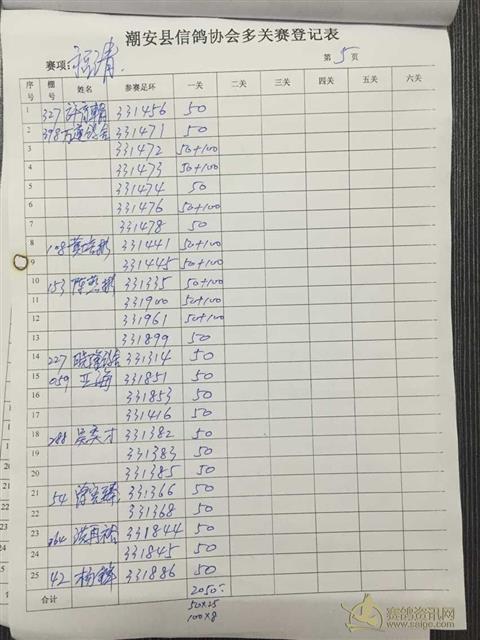 潮安县信鸽协会多关赛登记表
赛项: 福清. 第 5 页
序号 棚号 姓名 参赛足环 一关 二关 三关 四关 五关 六关
1 327 331456 50
2 398 331471 50
3 331472 50+100
4 331473 50+100
5 331474 50
6 331476 50+100
7 331478 50
8 108 331441 50+100
9 331445 50+100
10 153 331335 50+100
11 331900 50+100
12 331961 50+100
13 331899 50
14 227 331314 50
15 059 亚海 331851 50
16 331853 50
17 331416 50
18 288 吴奕才 331382 50
19 331383 50
20 331385 50
21 54 331366 50
22 331368 50
23 064 331844 50
24 331845 50
25 42 杨锋 331886 50
合计 2050.-
50×25
100×8
赛鸽资讯网
www.saige.com